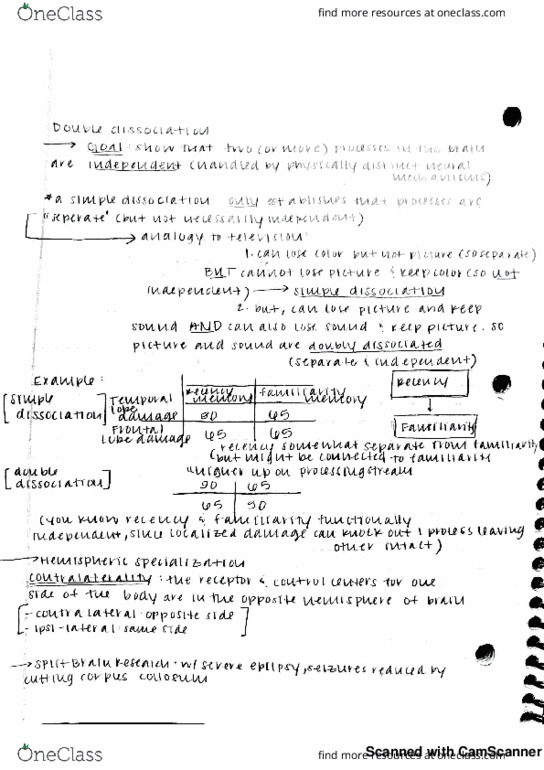 OneClass
find more resources at oneclass.com
Double dissociation
→ Goal: show that two (or more) processes in the brain
are independent (handled by physically distinct neural
mechanisms)
*a simple dissociation only establishes that processes are
"seperate" (but not necessarily independent)
→ analogy to television:
1. can lose color but not picture (so separate)
BUT cannot lose picture & keep color (so not
independent) → simple dissociation
2. but, can lose picture and keep
sound AND can also lose sound & keep picture. so
picture and sound are doubly dissociated
(separate & independent)
Example:
[simple dissociation]
recency memory | familiarity memory
Temporal lobe damage 90 | 65
Frontal lobe damage 65 | 65
recency
↓
Familiarity
recency somewhat separate from familiarity
(but might be connected to familiarity
higher up on processing stream
[double dissociation]
90 | 65
65 | 90
(you know recency & familiarity functionally
independent, since localized damage can knock out 1 process leaving
other intact)
→ Hemispheric specialization
contralaterality: the receptor & control centers for one
side of the body are in the opposite hemisphere of brain
- contralateral: opposite side
- ipsi-lateral: same side
→ split Brain Research: w/ severe epilipsy, seizures reduced by
cutting corpus collosum
OneClass
find more resources at oneclass.com
Scanned with CamScanner